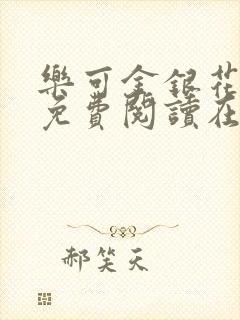 樂可金銀花
免費閱讀在
郝笑天